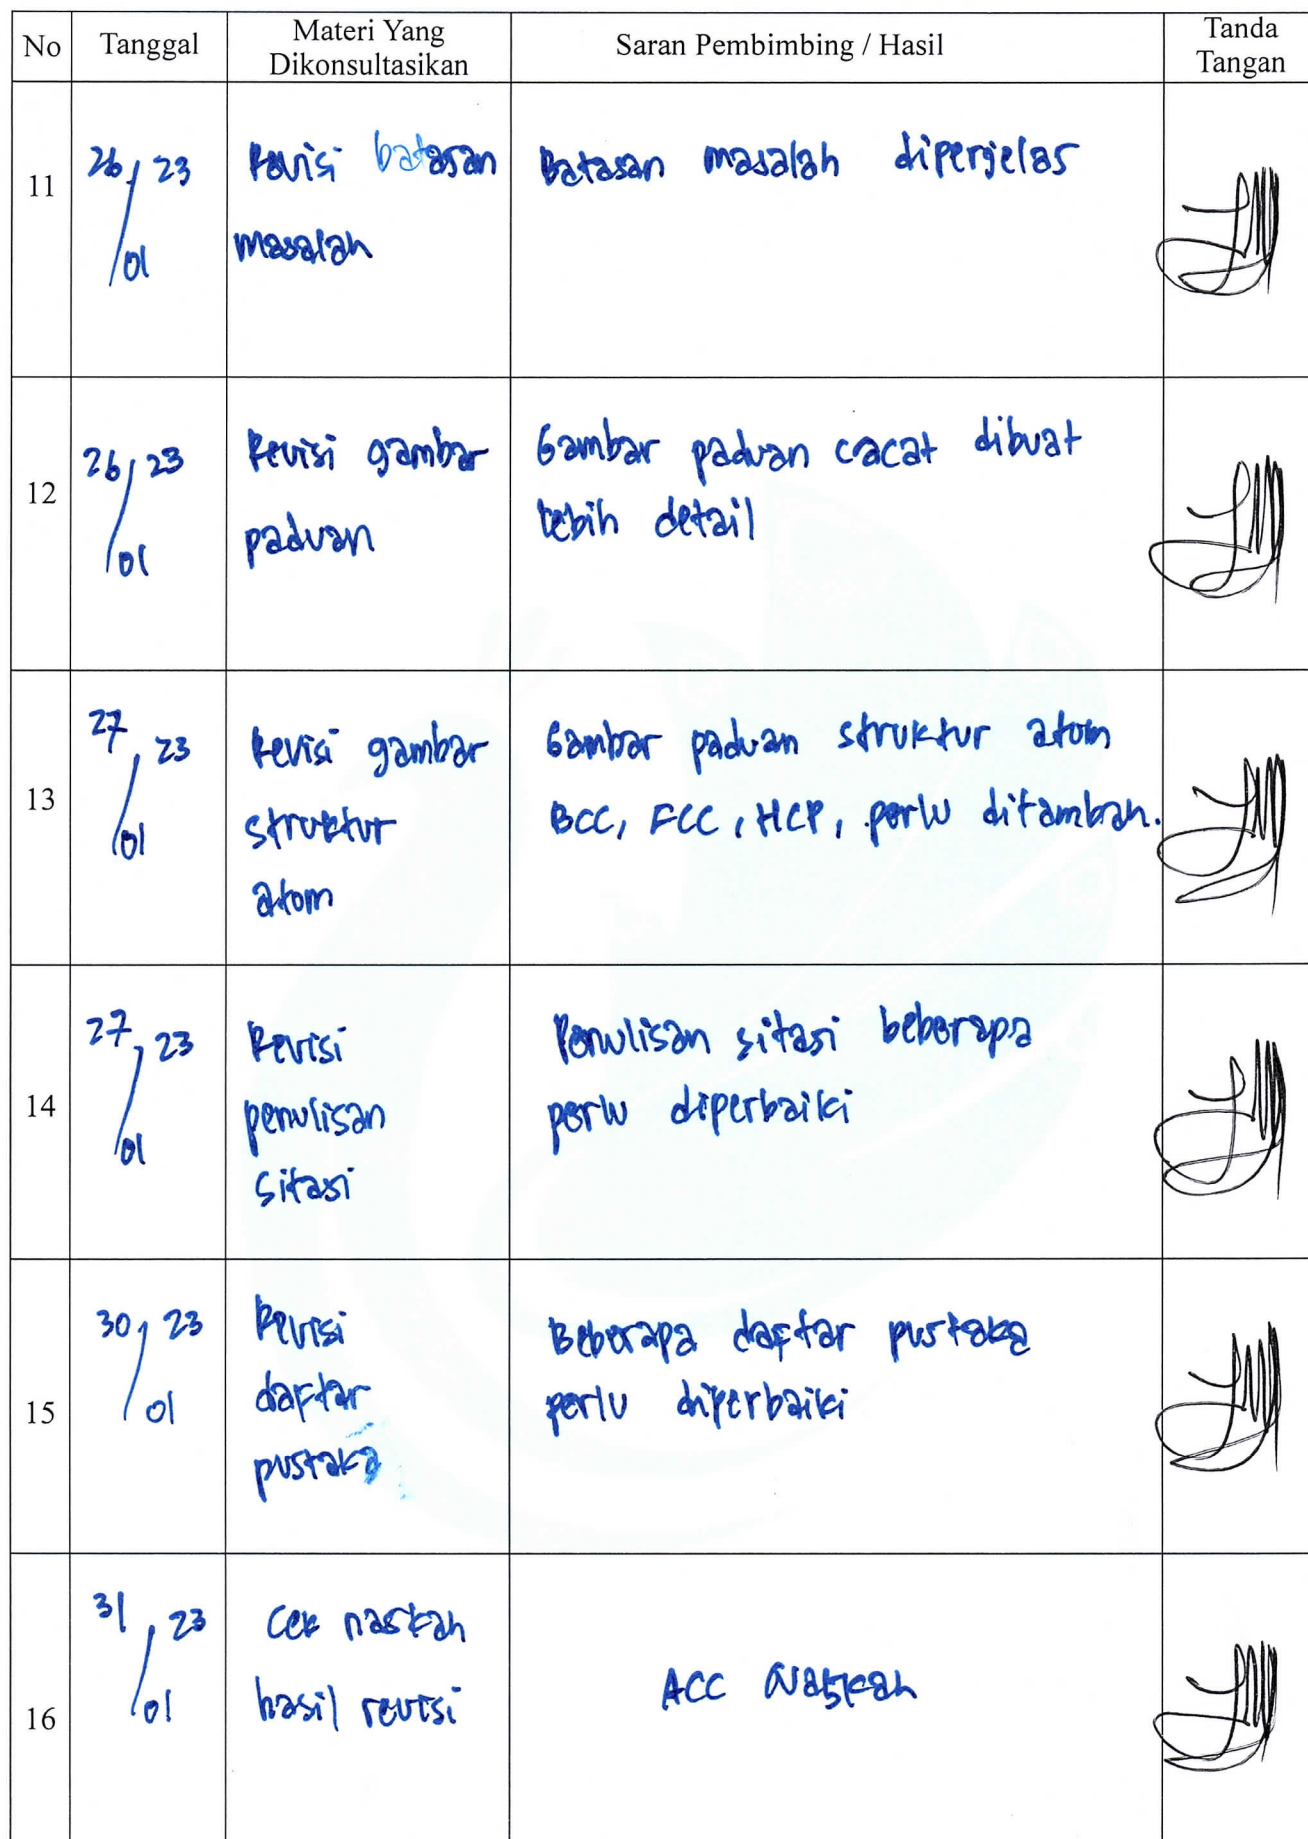 No Tanggal Materi Yang Dikonsultasikan Saran Pembimbing / Hasil Tanda Tangan
11 26/01 23 Revisi batasan masalah Batasan masalah diperjelas
12 26/01 23 Revisi gambar paduan Gambar paduan cacat dibuat lebih detail
13 27/01 23 Revisi gambar struktur atom Gambar paduan struktur atom BCC, FCC, HCP, perlu ditambah.
14 27/01 23 Revisi penulisan sitasi Penulisan sitasi beberapa perlu diperbaiki
15 30/01 23 Revisi daftar pustaka Beberapa daftar pustaka perlu diperbaiki
16 31/01 23 Cek naskah hasil revisi ACC Naskah